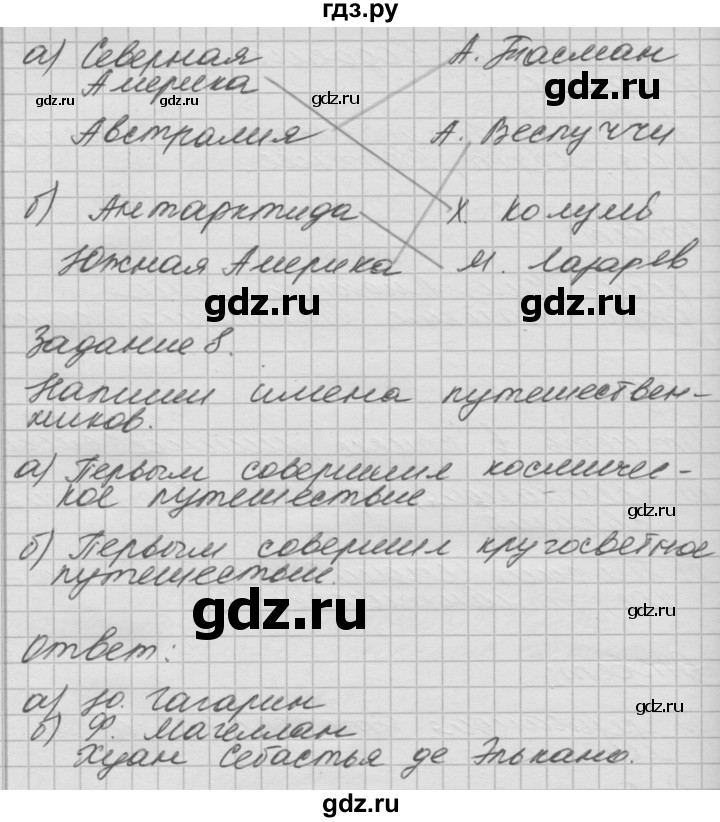 гдз.ру
а) Северная А. Тасман
Америка
gdz.ru gdz.ru gdz.ru gdz.ru
Австралия А. Веспуччи
б) Антарктида Х. Колумб
Южная Америка М. Лазарев
gdz.ru gdz.ru
Задание 8.
Напиши имена путешествен-
ников.
а) Первым совершил космичес-
кое путешествие
gdz.ru
б) Первым совершил кругосветное
путешествие.
gdz.ru gdz.ru
Ответ:
а) Ю. Гагарин
gdz.ru
б) Ф. Магеллан
Хуан Себастья де Элькано.
gdz.ru